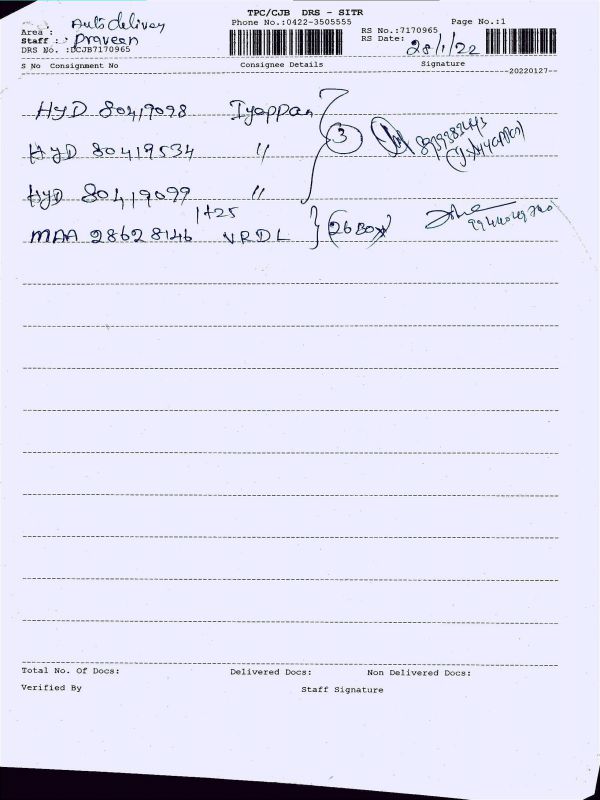 TPC/CJB DRS - SITR
Area : Auto delivery
Phone No.:0422-3505555
Page No.:1
Staff : Praveen
RS No.:7170965
DRS No. :DCJB7170965
RS Date: 28/1/22
S No Consignment No Consignee Details Signature
20220127
HYD 80419098 Iyappan
3
HYD 80419534 〃
HYD 80419099 〃
1+25
MAA 28628146 VRDL (26 Box)
Total No. Of Docs: Delivered Docs: Non Delivered Docs:
Verified By Staff Signature